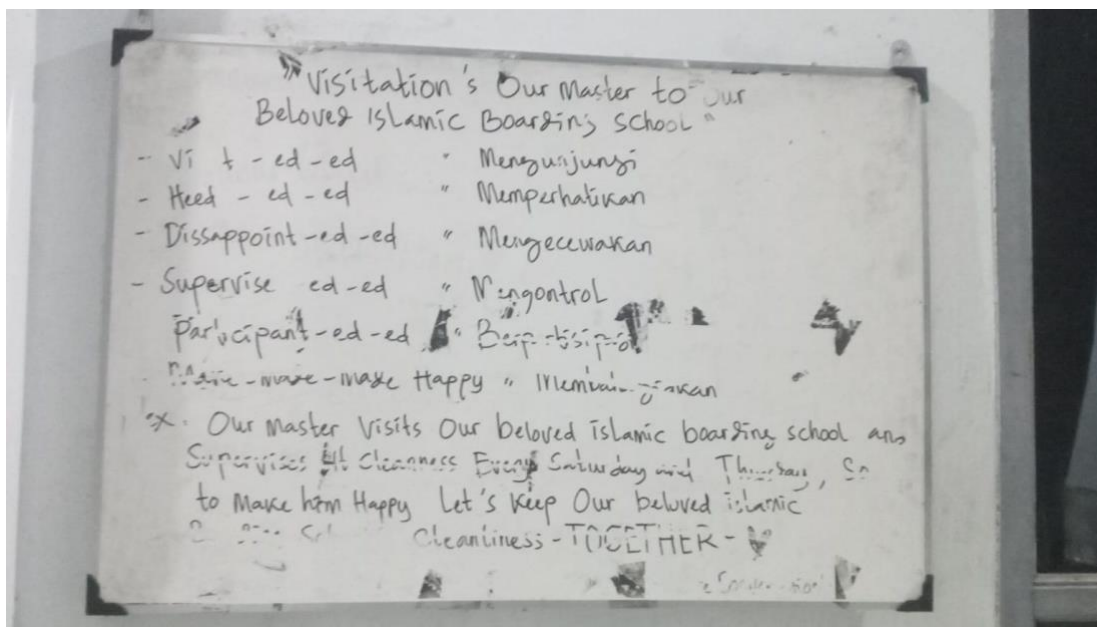 "Visitation's Our Master to Our
Beloved Islamic Boarding School"
- Vi t - ed - ed " Mengunjungi
- Heed - ed - ed " Memperhatikan
- Dissappoint - ed - ed " Mengecewakan
- Supervise ed - ed " Mengontrol
Participant - ed - ed "
- made - made Happy "
* Our Master Visits Our beloved islamic boarding school and
Supervises Cleanness Every Saturday and Thursday, So
to Make him Happy Let's Keep Our beloved islamic
Cleanliness - TOGETHER -